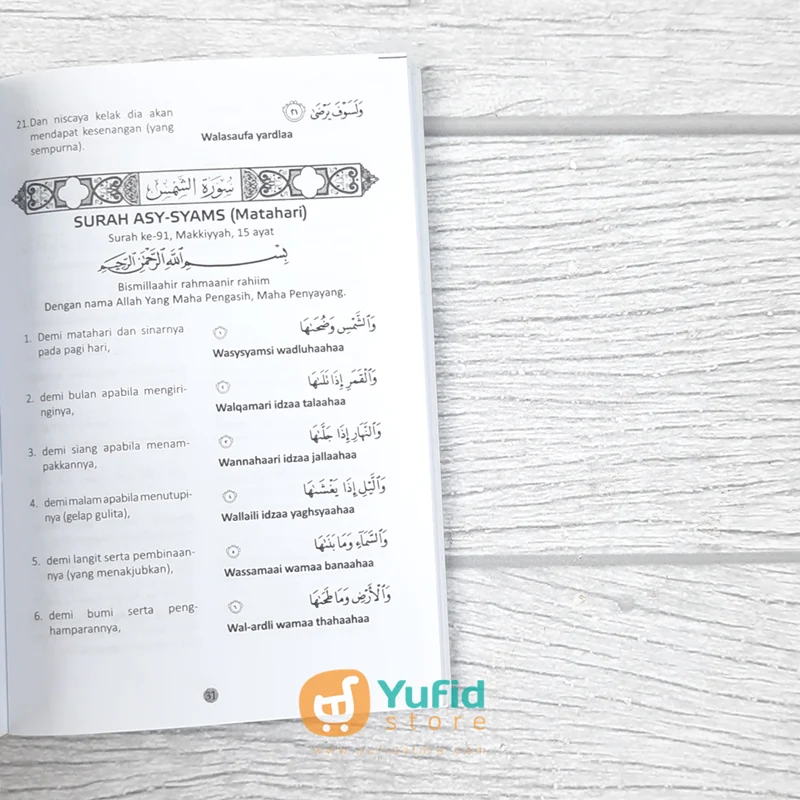 21. Dan niscaya kelak dia akan
mendapat kesenangan (yang
sempurna).
وَلَسَوْفَ يَرْضَىٰ ٢١
Walasaufa yardlaa
سُورَةُ الشَّمْسِ
SURAH ASY-SYAMS (Matahari)
Surah ke-91, Makkiyyah, 15 ayat
بِسْمِ اللَّهِ الرَّحْمَٰنِ الرَّحِيمِ
Bismillaahir rahmaanir rahiim
Dengan nama Allah Yang Maha Pengasih, Maha Penyayang.
1. Demi matahari dan sinarnya
pada pagi hari,
وَالشَّمْسِ وَضُحَىٰهَا ١
Wasysyamsi wadluhaahaa
2. demi bulan apabila mengiri-
nginya,
وَالْقَمَرِ إِذَا تَلَىٰهَا ٢
Walqamari idzaa talaahaa
3. demi siang apabila menam-
pakkannya,
وَالنَّهَارِ إِذَا جَلَّىٰهَا ٣
Wannahaari idzaa jallaahaa
4. demi malam apabila menutupi-
nya (gelap gulita),
وَاللَّيْلِ إِذَا يَغْشَىٰهَا ٤
Wallaili idzaa yaghsyaahaa
5. demi langit serta pembinaan-
nya (yang menakjubkan),
وَالسَّمَاءِ وَمَا بَنَىٰهَا ٥
Wassamaai wamaa banaahaa
6. demi bumi serta peng-
hamparannya,
وَالْأَرْضِ وَمَا طَحَىٰهَا ٦
Wal-ardli wamaa thahaahaa
31
Yufid
store